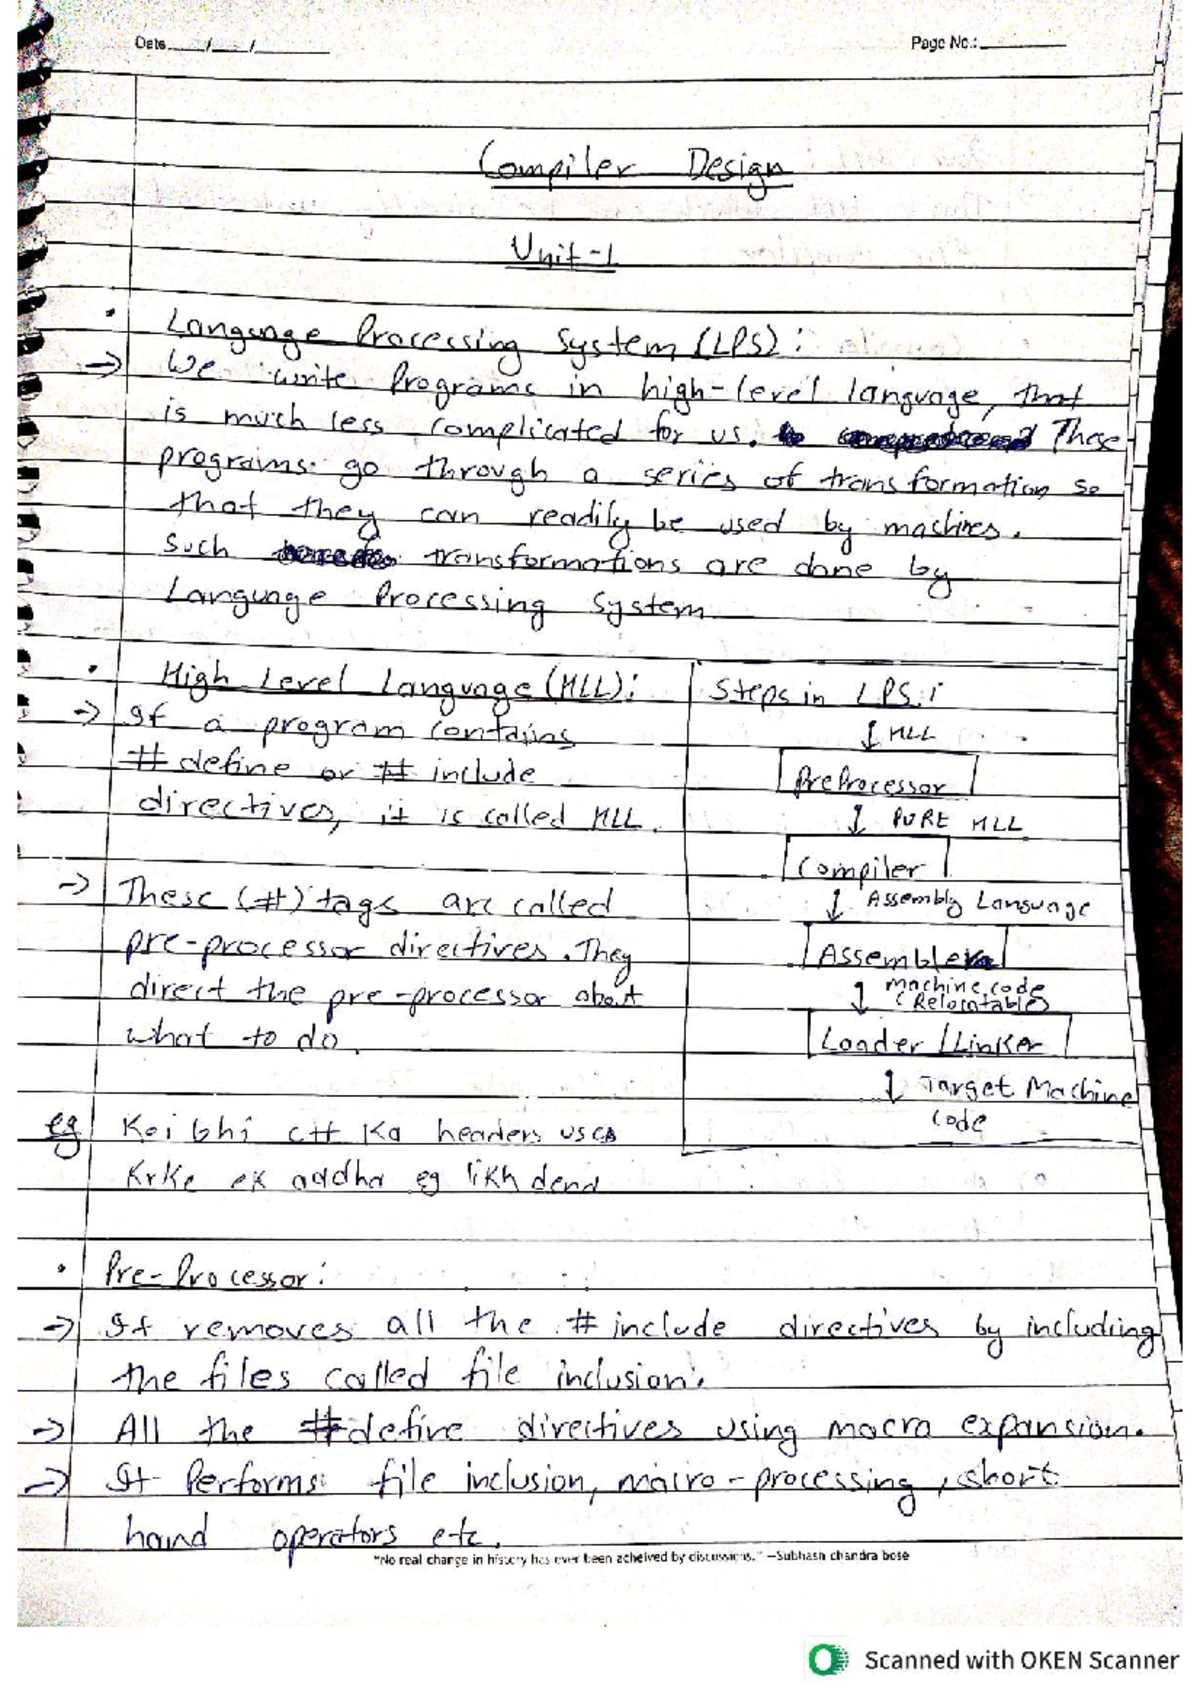 Date ___/___/______ Page No.: ______
Compiler Design
Unit-1
• Language Processing System (LPS):
→ We write Programs in high-level language, that
is much less complicated for us. These
programs go through a series of transformation so
that they can readily be used by machines.
Such transformations are done by
Language Processing System
• High Level Language (HLL):
→ If a program contains
#define or # include
directives, it is called HLL.
→ These (#) tags are called
pre-processor directives. They
direct the pre-processor about
what to do.
eg Koi bhi c++ ka headers use
krke ek aadha eg likh dena
Steps in LPS:
↓ HLL
PreProcessor
↓ PURE HLL
Compiler
↓ Assembly Language
Assembler
↓ machine code
(Relocatable)
Loader / Linker
↓ Target Machine
Code
• Pre-Processor:
→ It removes all the # include directives by including
the files called file inclusion.
→ All the #define directives using macro expansion.
→ It Performs file inclusion, macro-processing, short
hand operators etc.
"No real change in history has ever been acheived by discussions." —Subhash chandra bose
Scanned with OKEN Scanner